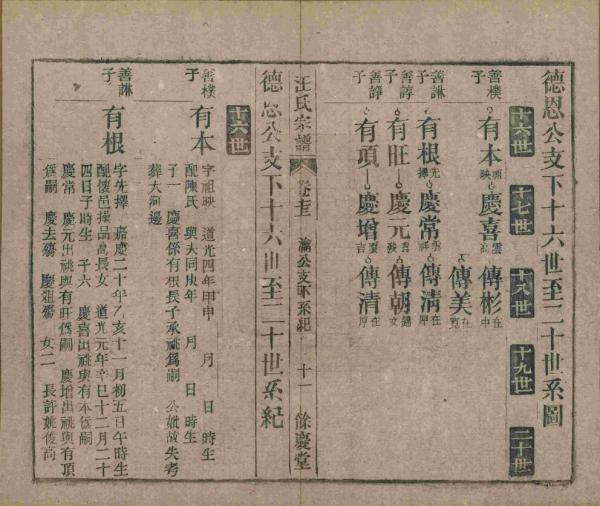 德恩公支下十六世至二十世系圖
十六世 十七世 十八世 十九世 二十世
善樸子 有本 慶喜 傳彬 在中
傳美 在
善誁子 有根 先擇 慶常 傳清 在厚
善諄子 有旺 慶元 傳朝 錦文
善諍子 有項 慶增 傳清 在厚
汪氏宗譜 卷 支下系紀 十一 餘慶堂
德恩公支下十六世至二十世系紀
十六世
善樸子 有本 字祖映 道光四年甲申 月 日 時生
配陳氏 與夫同庚年 月 日 時生
子一 慶喜係有根長子承祧爲嗣 公妣故失考
葬大河邊
善誁子 有根 字先擇 嘉慶二十年乙亥十一月初五日午時生
配懷邑操品高長女 道光元年辛巳十二月二十
四日子時生 子六 慶喜出祧與有本爲嗣
慶常 慶元出祧與有旺爲嗣 慶增出祧與有項
爲嗣 慶去殤 慶 殤 女二 長許姚俊高